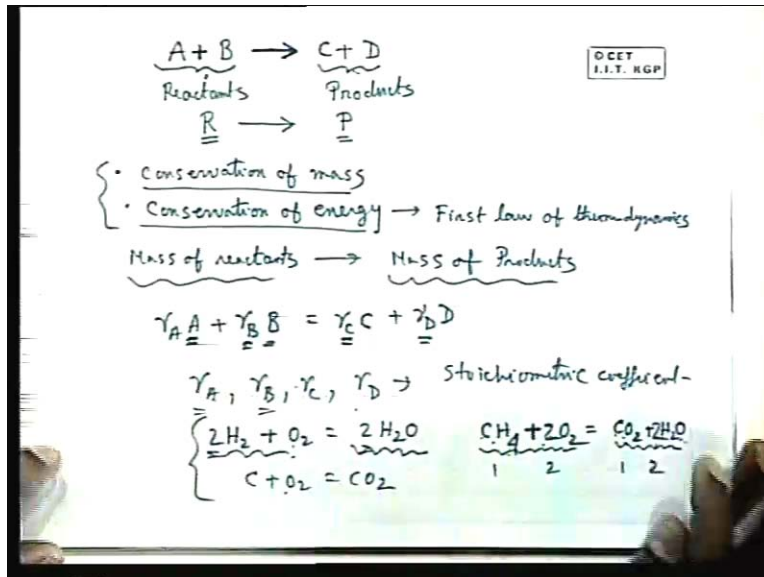 A + B → C + D
© CET
I.I.T. KGP
Reactants Products
R → P
· Conservation of mass
· Conservation of energy → First law of thermodynamics
Mass of reactants → Mass of Products
γ_A A + γ_B B = γ_C C + γ_D D
γ_A, γ_B, γ_C, γ_D → Stoichiometric coefficient
2H₂ + O₂ = 2H₂O CH₄ + 2O₂ = CO₂ + 2H₂O
1 2 1 2
C + O₂ = CO₂